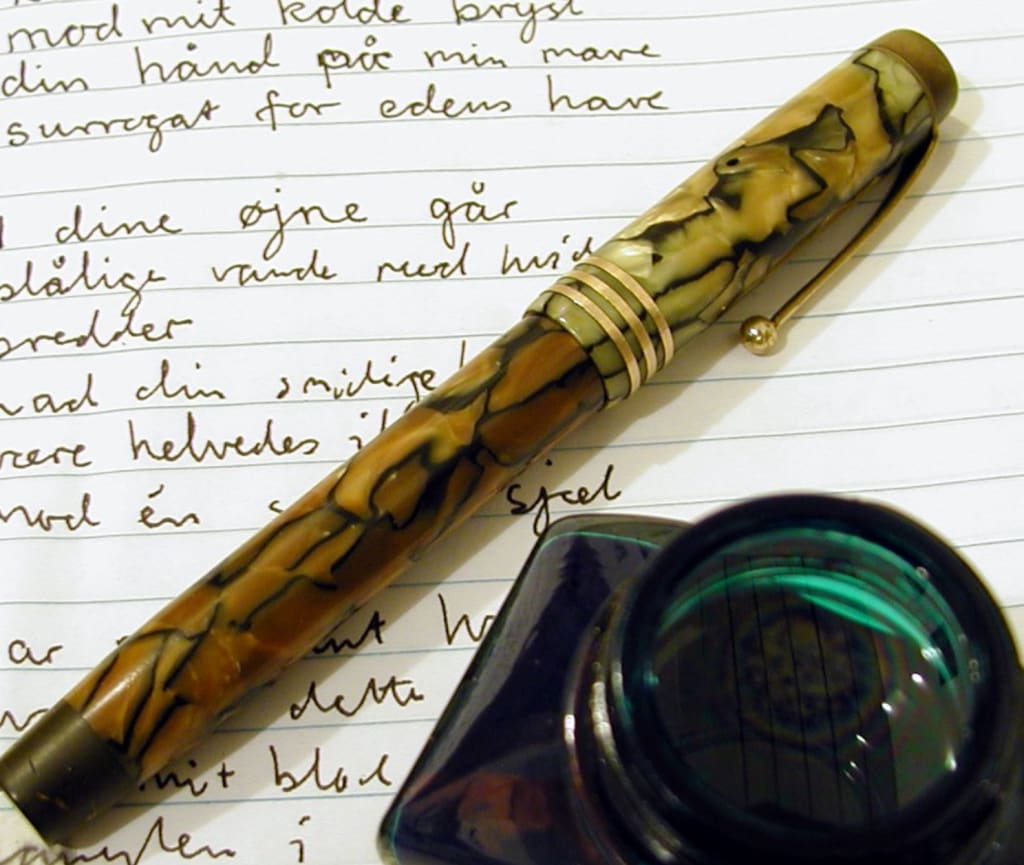 mod mit kolde bryst
din hånd på min mave
surrogat for edens have
dine øjne går
blålige vande med hvid
bredder
din smidige
være helvedes
mod én sjæl
ar
dette
mit blod
i